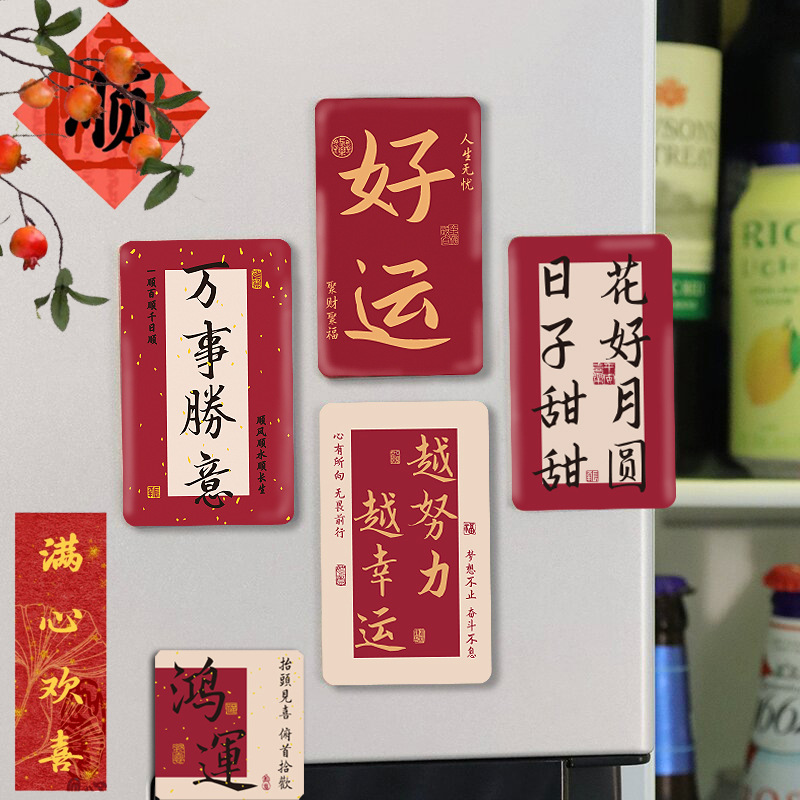 顺
好运
人生无忧
聚财聚福
万事勝意
一顺百顺千日顺
顺风顺水顺长生
花好月圆
日子甜甜
越努力
越幸运
心有所向 无畏前行
梦想不止 奋斗不息
福
满心欢喜
鸿運
抬頭見喜 俯首拾歡
RIC